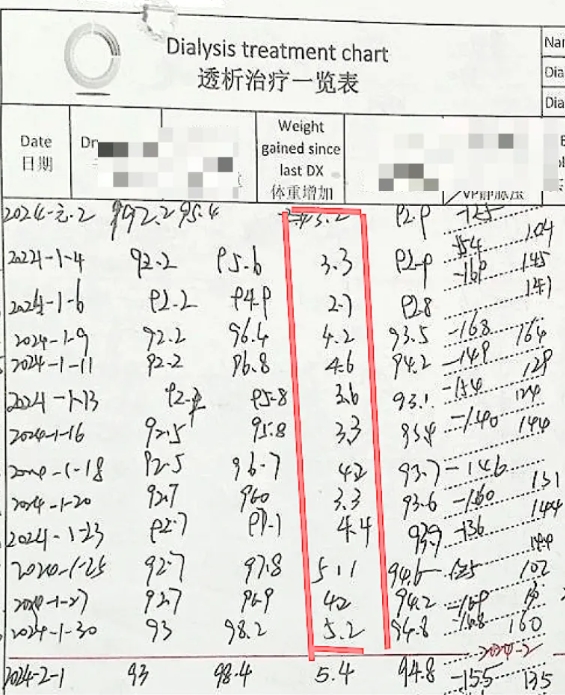 Dialysis treatment chart
透析治疗一览表
Nar
Dia
Dia
Date
日期
Dr
Weight
gained since
last DX
体重增加
VP静脉压
2024-元.2 92.2 95.4 3.2 92.9 104
2024-1-4 92.2 95.6 3.3 92.9 -154 145
2024-1-6 92.2 94.9 2.7 92.8 -169 141
2024-1-9 92.2 96.4 4.2 93.5 -168 164
2024-1-11 92.2 96.8 4.6 94.2 -149 129
2024-1-13 95.8 3.6 93.1 -154 124
2024-1-16 92.5 95.8 3.3 -140 144
2024-1-18 92.5 96.7 4.2 93.7 -146 131
2024-1-20 92.7 96.0 3.3 93.6 -160 144
2024-1-23 92.7 97.1 4.4 -136 144
2024-1-25 92.7 97.8 5.11 94.6 102
2024-1-27 92.7 96.9 4.2 94.2 -169
2024-1-30 93 98.2 5.2 94.8 -168 160
2024-2
2024-2-1 93 98.4 5.4 94.8 -155 135